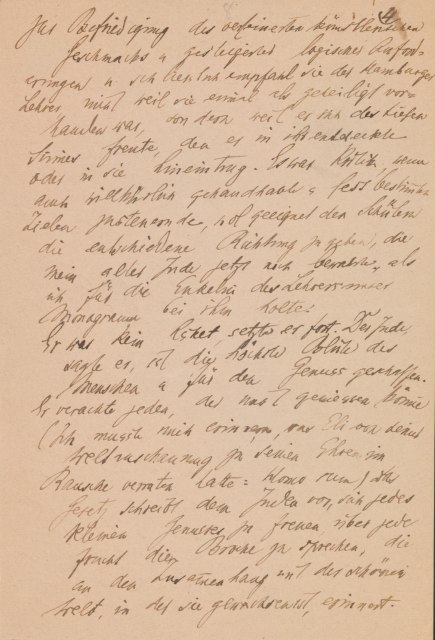 4
zur Befriedigung des verfeinerten künstlerischen
Geschmacks u gesteigerter logischer Anford-
erungen u schliesslich empfand sie der Hamburger
Lehrer nicht weil sie einmal als geheiligt vor-
handen war, sondern weil es ihn des tiefen
Sinnes freute, den er in ihr entdeckte
oder in sie hineintrug. Es war Kritik, wenn
auch willkürlich gehandhabte u fest bestimmten
Zielen zusteuernde, wol geeignet den Schülern
die entschiedene Richtung zu geben, die
mein alter Jude jetzt noch bewahrte, als
ich für die Enkelin des Lehrers
Monogramm bei ihm holte.
Er war kein Asket, setzte er fort. Der Jude,
sagte er, ist die höchste Blüte des
Menschen u für den Genuss geschaffen.
Er verachte jeden, der nicht geniessen könne
(Ich musste mich erinnern, was Eli von deiner
Weltanschauung zu seinen Ehren im
Rausche verraten hatte: homo sum) Das
Gesetz schreibt dem Juden vor, sich jedes
kleinen Genusses zu freuen über jede
Frucht die zu sprechen, die
an den Zusammenhang mit der schönen
Welt, in der sie gewachsen ist, erinnert.